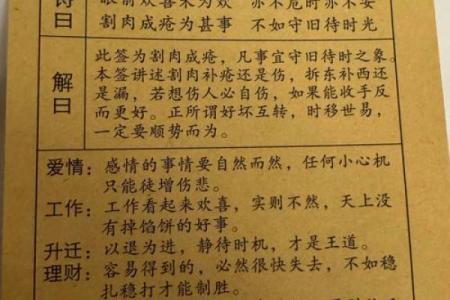 诗曰
眼前欢喜未为欢 亦不危时亦不安
割肉成疮为甚事 不如守旧待时光
解曰
此签为割肉成疮,凡事宜守旧待时之象。
本签讲述割肉补疮还是伤,拆东补西还
是漏,若想伤人必自伤,如果能收手反
而更好。正所谓好坏互转,时移世易,
一定要顺势而为。
爱情:感情的事情要自然而然,任何小心机
只能徒增伤悲。
工作:工作看起来欢喜,实则不然,天上没
有掉馅饼的好事。
升迁:以退为进,静待时机,才是王道。
理财:容易得到的,必然很快失去,不如稳
扎稳打才能制胜。